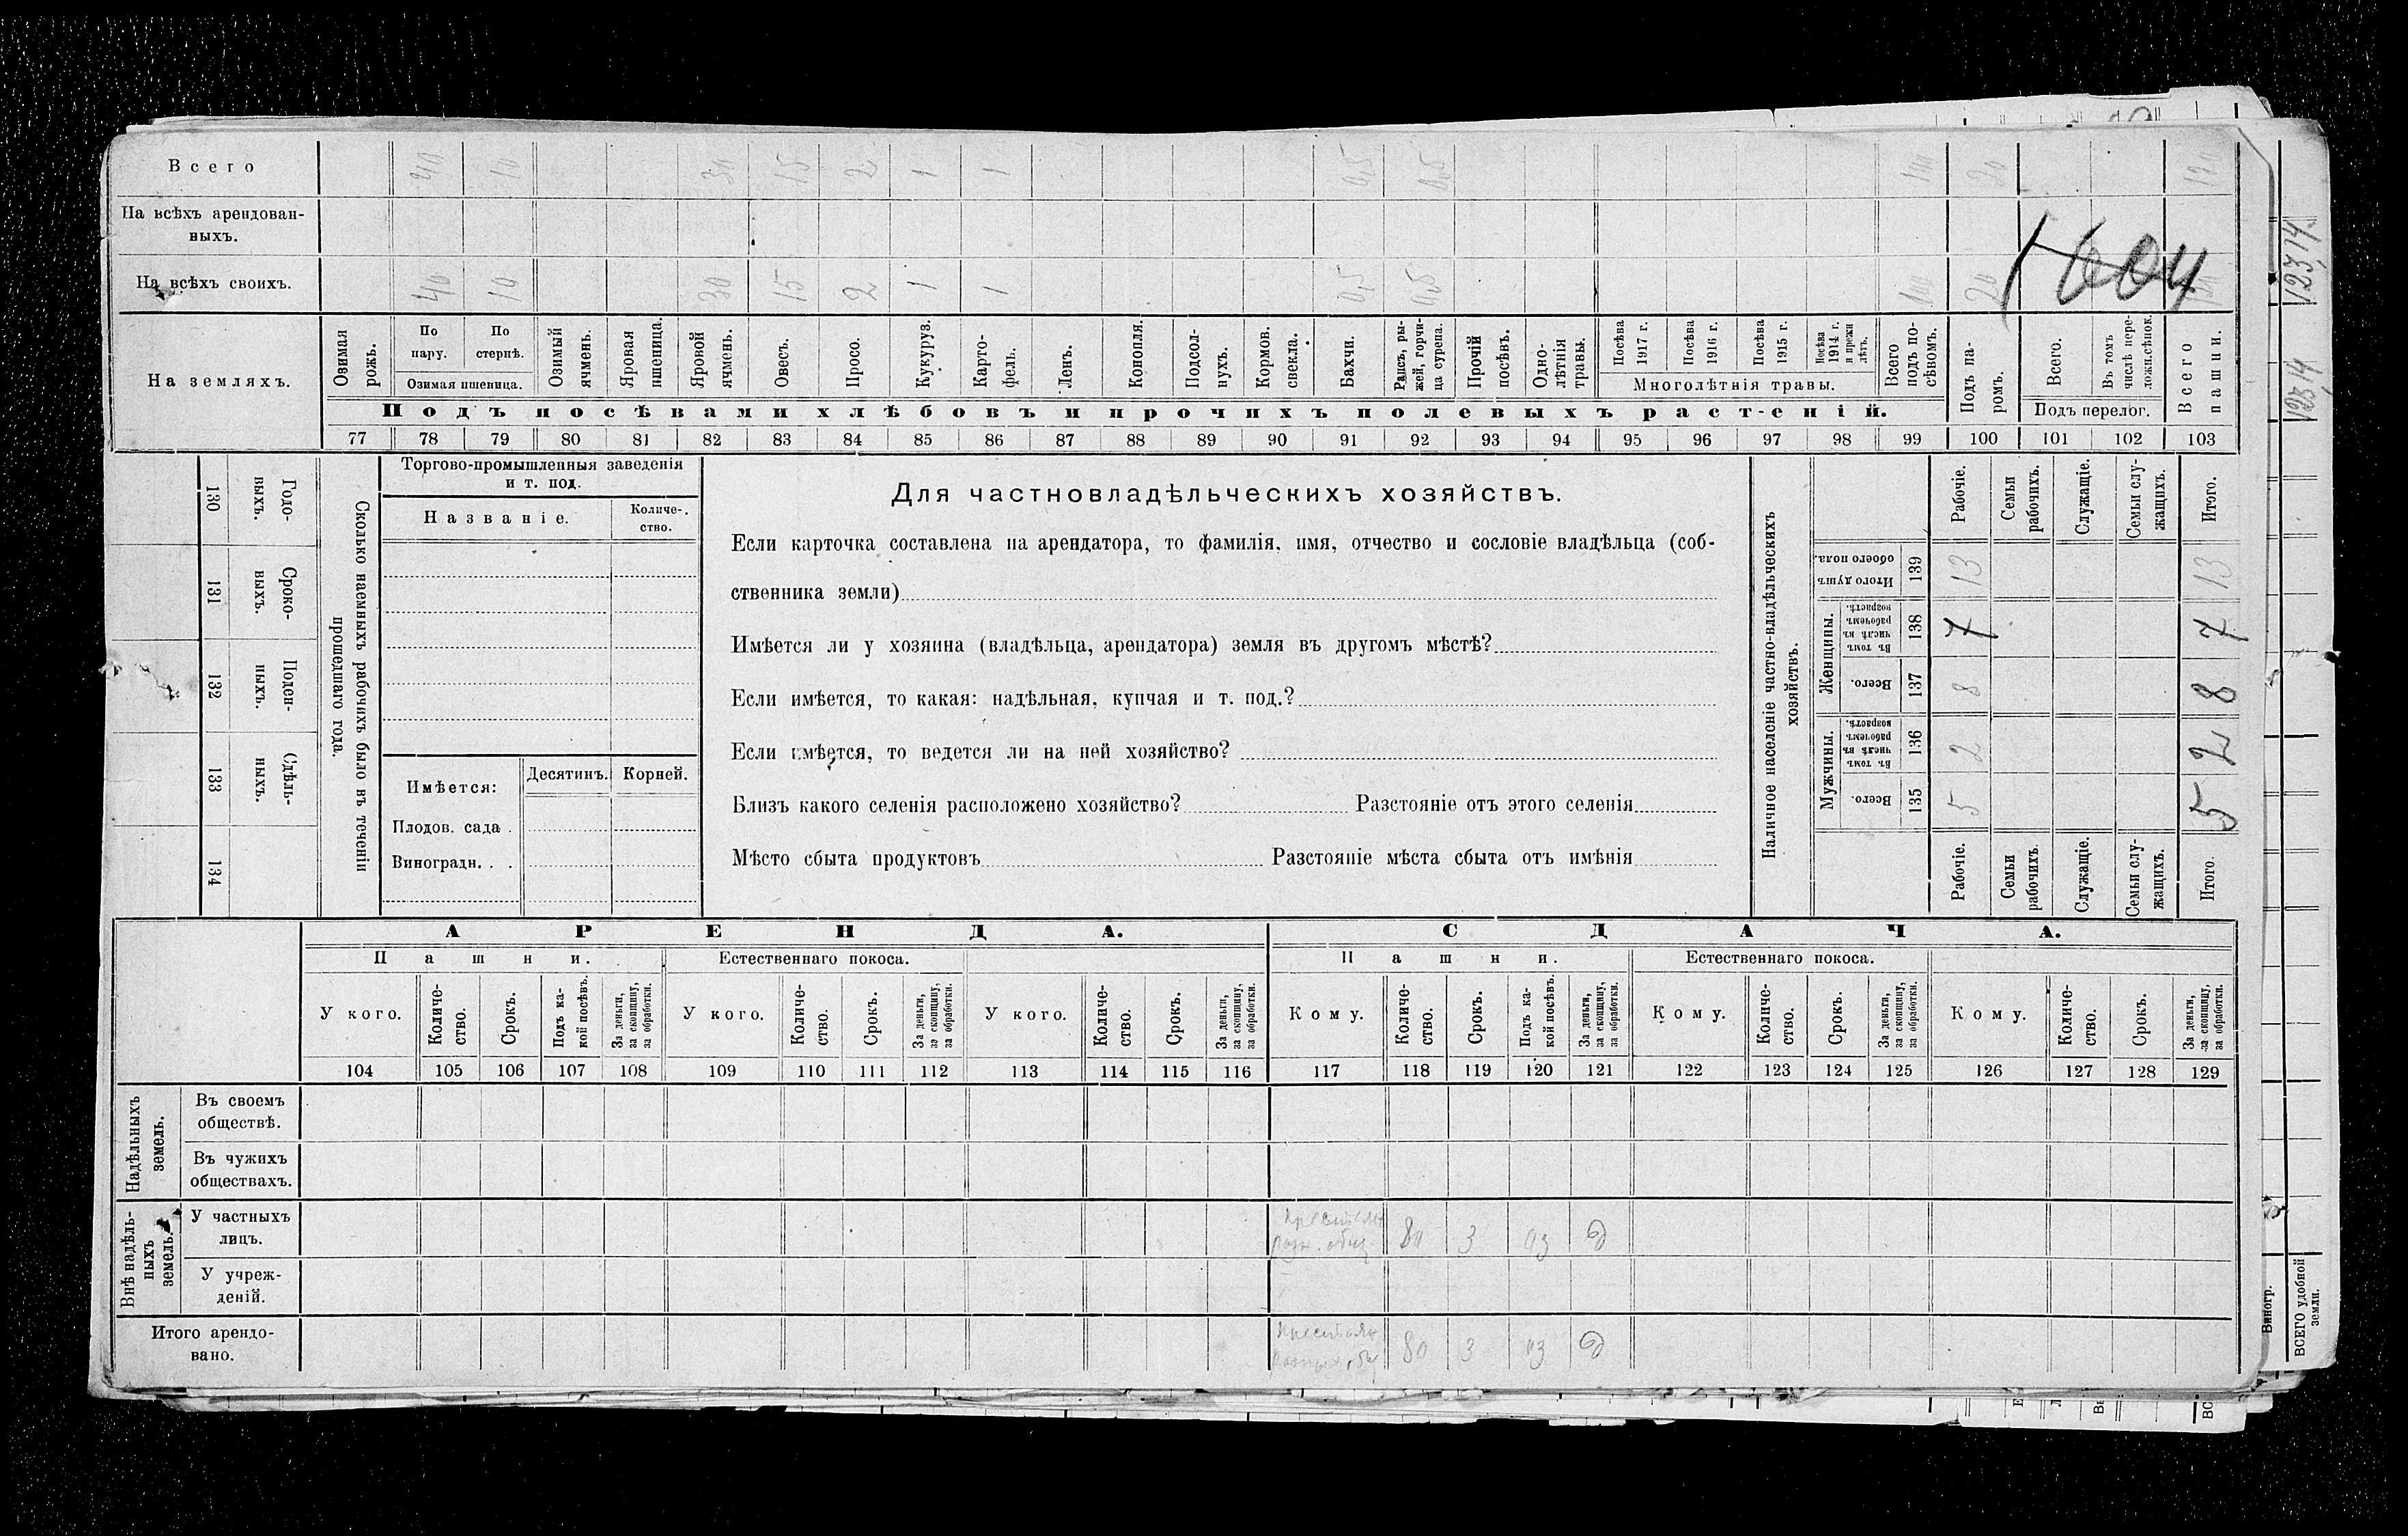 Всего 40 10 30 15 2 1 1 0,5 0,5 100 20 120
На всѣхъ арендован-
ныхъ.
На всѣхъ своихъ. 40 10 30 15 2 1 1 0,5 0,5 100 20
1604
На земляхъ.
Озимая рожь.
По пару.
По стернѣ.
Озимая пшеница.
Озимый ячмень.
Яровая пшеница.
Яровой ячмень.
Овесъ.
Просо.
Кукуруз.
Карто-
фель.
Ленъ.
Конопля.
Подсол-
нухъ.
Кормов. свекла.
Бахчи.
Рапсъ, ры-
жей, горчи-
ца сурепа.
Прочій посѣвъ.
Одно-
лѣтнія травы.
Посѣва 1917 г.
Посѣва 1916 г.
Посѣва 1915 г.
Посѣва 1914 г. и прежн лѣтъ.
Многолѣтнія травы.
Всего подъ по-
сѣвомъ.
Подъ па-
ромъ.
Всего.
Въ томъ числѣ пере-
ложн.сѣнок.
Подъ перелог.
Всего пашни.
Подъ посѣвами хлѣбовъ и прочихъ полевыхъ раст-еній.
77 78 79 80 81 82 83 84 85 86 87 88 89 90 91 92 93 94 95 96 97 98 99 100 101 102 103
130 Годо-
выхъ.
131 Сроко-
выхъ.
132 Поден-
ныхъ.
133 Сдѣль-
ныхъ.
134
Сколько наемныхъ рабочихъ было въ теченіи
прошедшаго года.
Торгово-промышленныя заведенія
и т. под.
Названіе.
Количе-
ство.
Имѣется:
Десятинъ.
Корней.
Плодов. сада .
Виноградн. . .
Для частновладѣльческихъ хозяйствъ.
Если карточка составлена на арендатора, то фамилія, имя, отчество и сословіе владѣльца (соб-
ственника земли)
Имѣется ли у хозяина (владѣльца, арендатора) земля въ другомъ мѣстѣ?
Если имѣется, то какая: надѣльная, купчая и т. под.?
Если имѣется, то ведется ли на ней хозяйство?
Близъ какого селенія расположено хозяйство? Разстояніе отъ этого селенія
Мѣсто сбыта продуктовъ Разстояніе мѣста сбыта отъ имѣнія
Наличное населеніе частно-владѣльческихъ
хозяйствъ.
Рабочіе.
Семьи рабочихъ.
Служащіе.
Семьи слу-
жащихъ.
Итого.
Итого душъ обоего пола. 139 13 13
Женщины.
Въ томъ числѣ въ рабочемъ возрастѣ. 138 7 7
Всего. 137 8 8
Мужчины.
Въ томъ числѣ въ рабочемъ возрастѣ. 136 2 2
Всего. 135 5 5
Рабочіе.
Семьи рабочихъ.
Служащіе.
Семьи слу-
жащихъ.
Итого.
АРЕНДА.
СДАЧА.
Пашни.
Естественнаго покоса.
Пашни.
Естественнаго покоса.
У кого.
Количе-
ство.
Срокъ.
Подъ ка-
кой посѣвъ.
За деньги, за скопщину, за обработки.
У кого.
Количе-
ство.
Срокъ.
За деньги, за скопщину, за обработки.
У кого.
Количе-
ство.
Срокъ.
За деньги, за скопщину, за обработки.
Кому.
Количе-
ство.
Срокъ.
Подъ ка-
кой посѣвъ.
За деньги, за скопщину, за обработки.
Кому.
Количе-
ство.
Срокъ.
За деньги, за скопщину, за обработки.
Кому.
Количе-
ство.
Срокъ.
За деньги, за скопщину, за обработки.
104 105 106 107 108 109 110 111 112 113 114 115 116 117 118 119 120 121 122 123 124 125 126 127 128 129
Надѣльныхъ земель.
Въ своемъ
обществѣ.
Въ чужихъ
обществахъ.
Внѣ надѣль-
ныхъ земель.
У частныхъ
лицъ.
80 3 оз д
У учреж-
деній.
Итого арендо-
вано.
80 3 оз д
123,14
123,14
Виногр.
ВСЕГО удобной
земли.